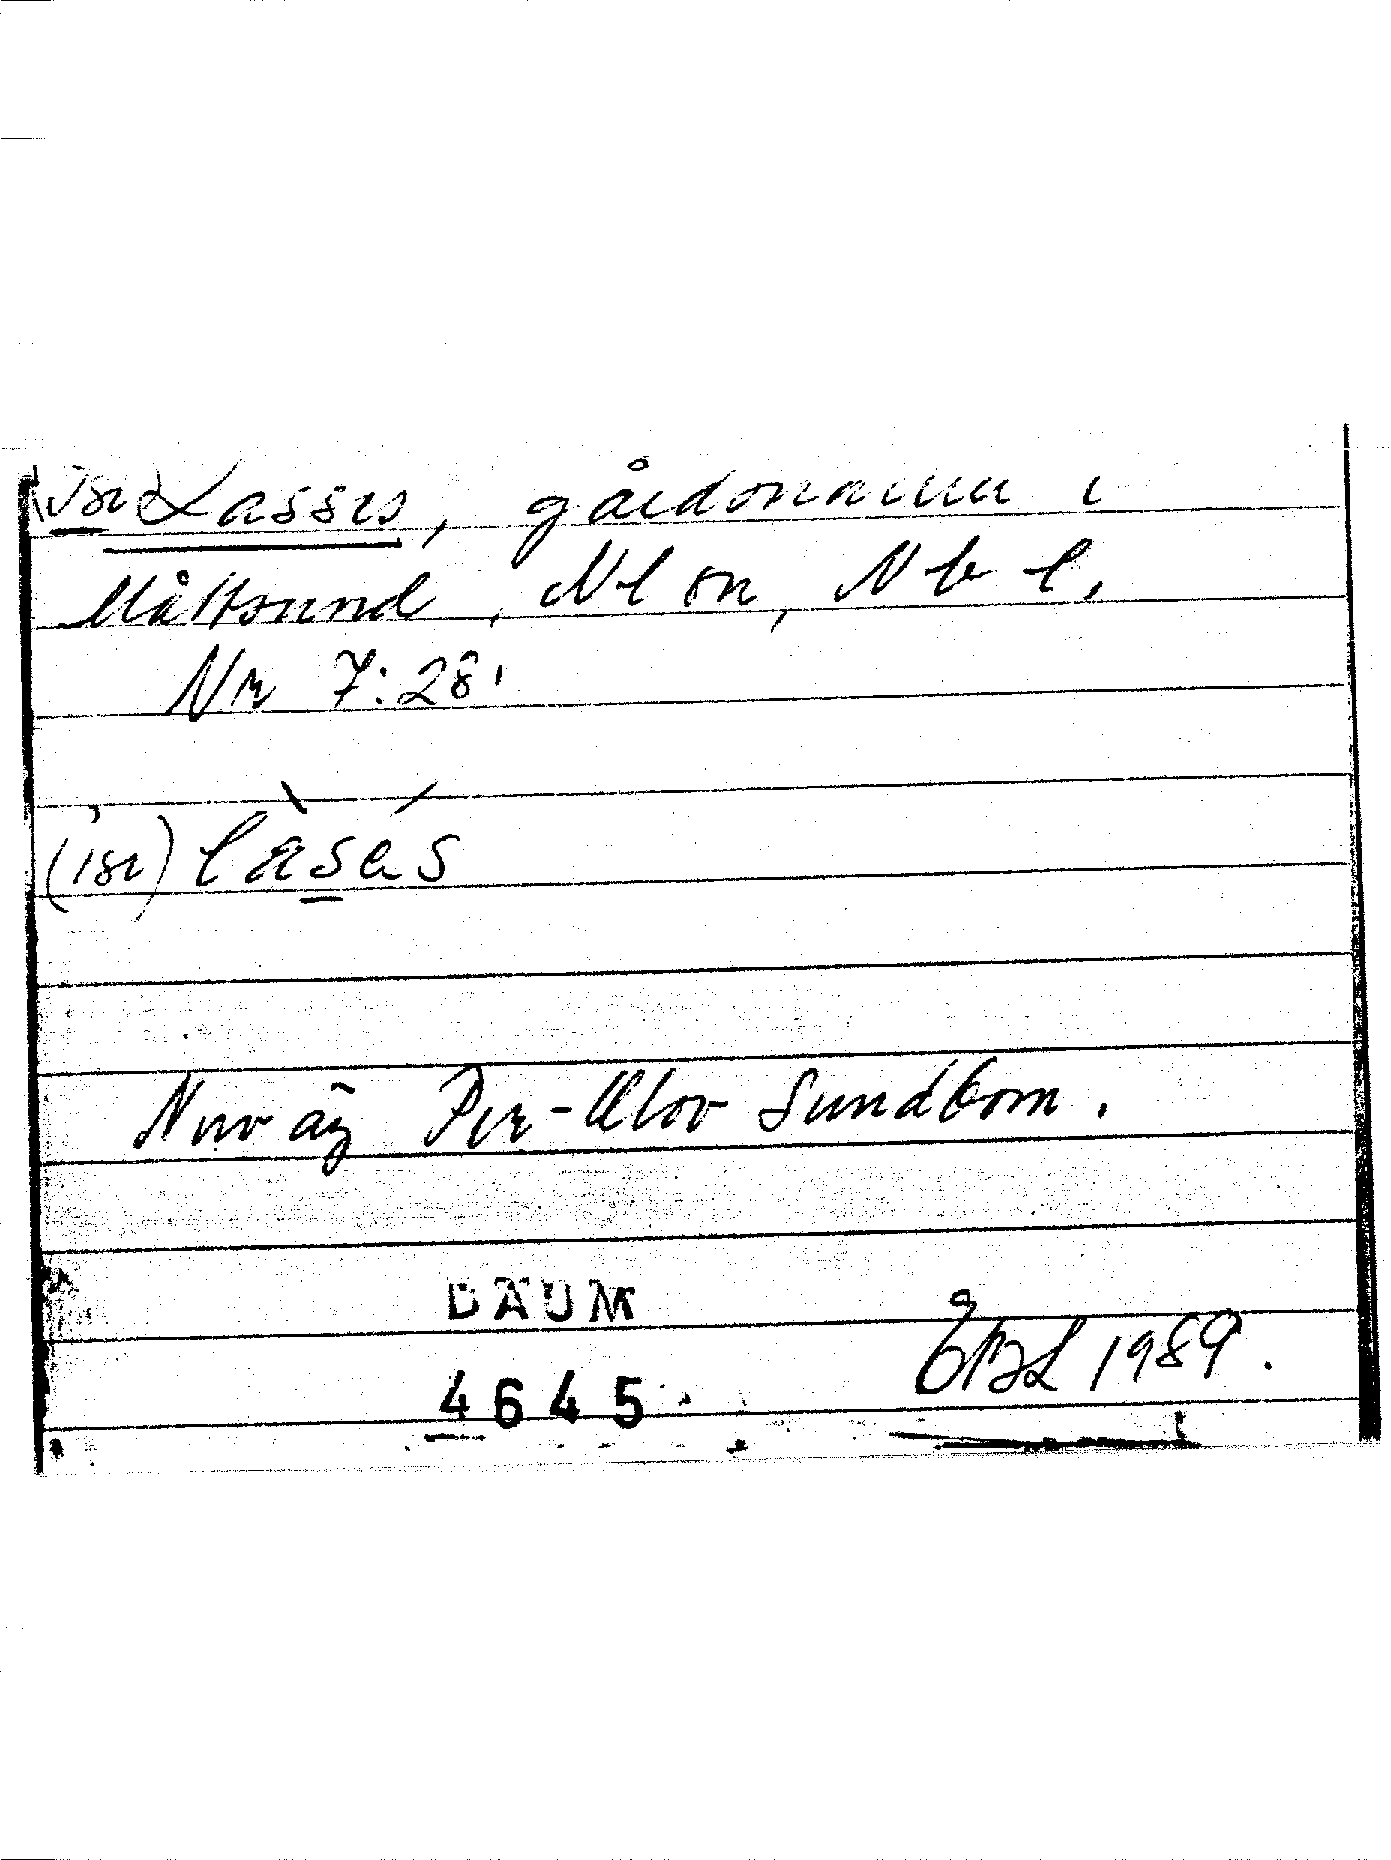 (Isr) Lasses, gårdsnamn i
Måttsund, Nl sn, Nb l,
Nr 7:28.
(ısr) làsa̋s
Nuv äg Per-Olov Sundbom.
DAUM
4645.
EBL 1989.